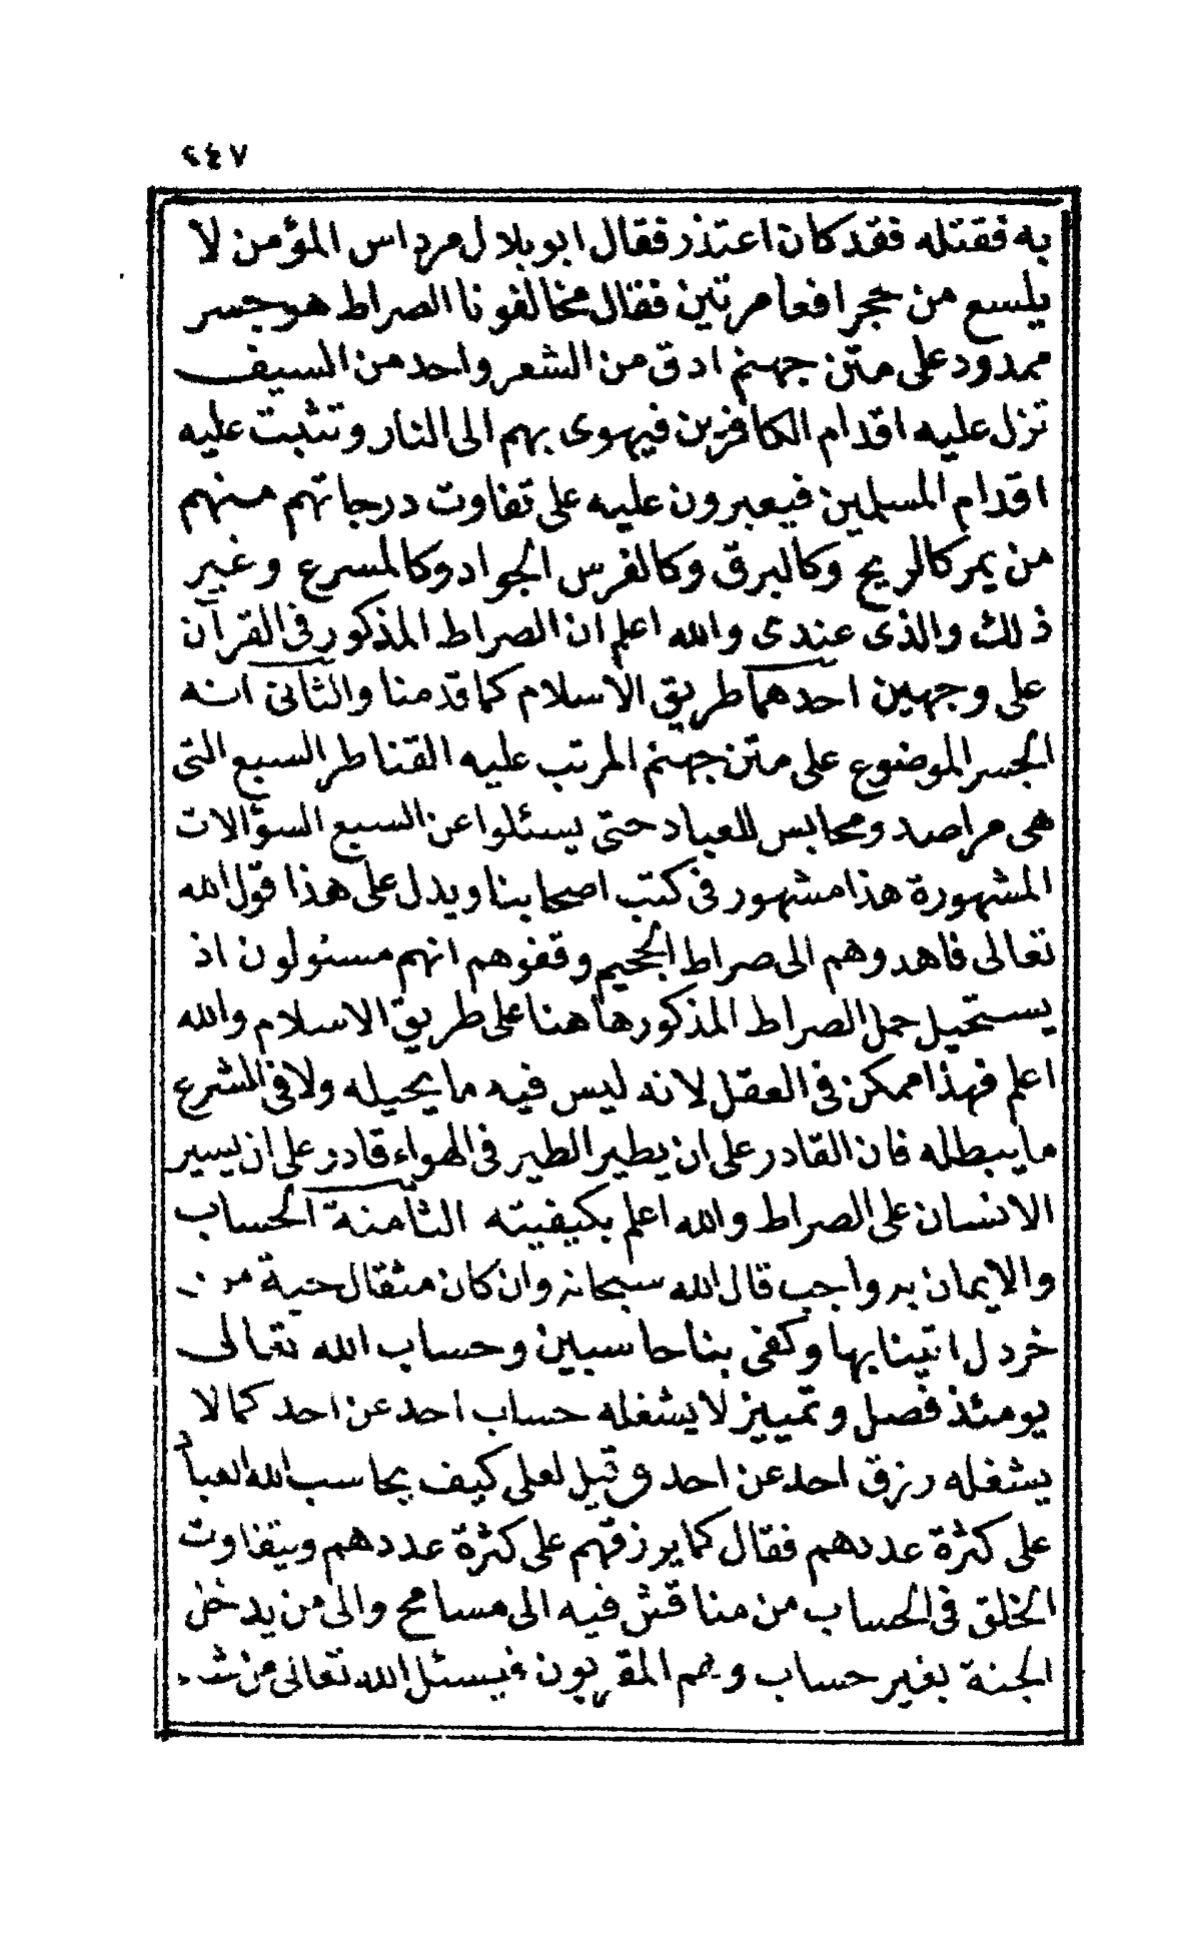 ٤٤٧
به فقتله فقد كان اعتذر فقال ابو بلال مرداس المؤمن لا
يلسع من حجر افعا مرتين فقال مخالفونا الصراط هو جسر
ممدود على متن جهنم ادق من الشعر واحد من السيف
تزل عليه اقدام الكافرين فيهوى بهم الى النار وتثبت عليه
اقدام المسلمين فيعبرون عليه على تفاوت درجاتهم منهم
من يمر كالريح وكالبرق وكالفرس الجواد وكالمسرع وغير
ذلك والذى عندى والله اعلم ان الصراط المذكور فى القرآن
على وجهين احدهما طريق الاسلام كما قدمنا والثانى انه
الجسر الموضوع على متن جهنم المرتب عليه القناطر السبع التى
هى مراصد ومحابس للعباد حتى يسئلوا عن السبع السؤالات
المشهورة هذا مشهور فى كتب اصحابنا ويدل على هذا قول الله
تعالى فاهدوهم الى صراط الجحيم وقفوهم انهم مسئولون اذ
يستحيل حمل الصراط المذكور هاهنا على طريق الاسلام والله
اعلم فهذا ممكن فى العقل لانه ليس فيه ما يحيله ولا فى الشرع
ما يبطله فان القادر على ان يطير الطير فى الهواء قادر على ان يسير
الانسان على الصراط والله اعلم بكيفيته الثامنة الحساب
والايمان به واجب قال الله سبحانه وان كان مثقال حبة من
خردل اتينا بها وكفى بنا حاسبين وحساب الله تعالى
يومئذ فصل وتمييز لا يشغله حساب احد عن احد كما لا
يشغله رزق احد عن احد وقيل لعلى كيف يحاسب الله العباد
على كثرة عددهم فقال كما يرزقهم على كثرة عددهم ويتفاوت
الخلق فى الحساب من مناقش فيه الى مسامح والى من يدخل
الجنة بغير حساب وهم المقربون فيسئل الله تعالى من شاء